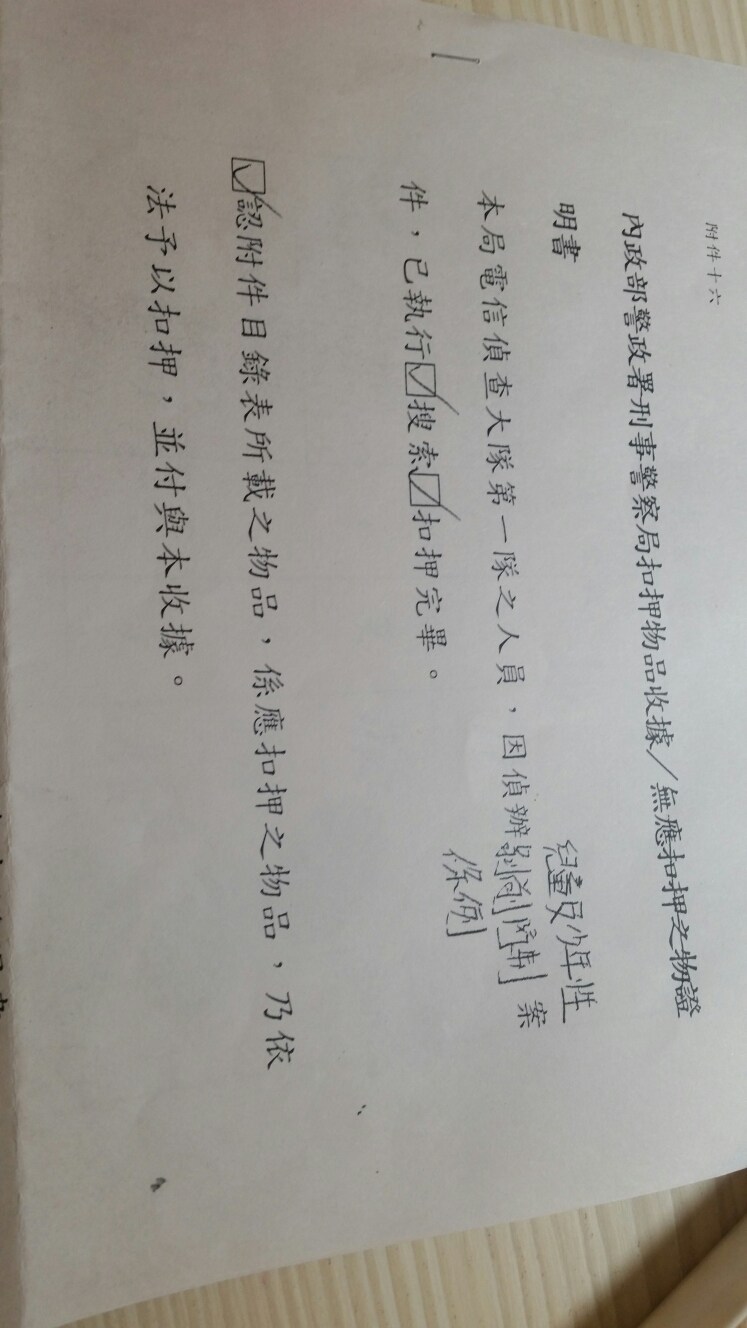 附件十六
內政部警政署刑事警察局扣押物品收據／無應扣押之物證
明書
兒童及少年性
本局電信偵查大隊第一隊之人員，因偵辦剝削防制 案
條例
件，已執行☑搜索☑扣押完畢。
☑認附件目錄表所載之物品，係應扣押之物品，乃依
法予以扣押，並付與本收據。